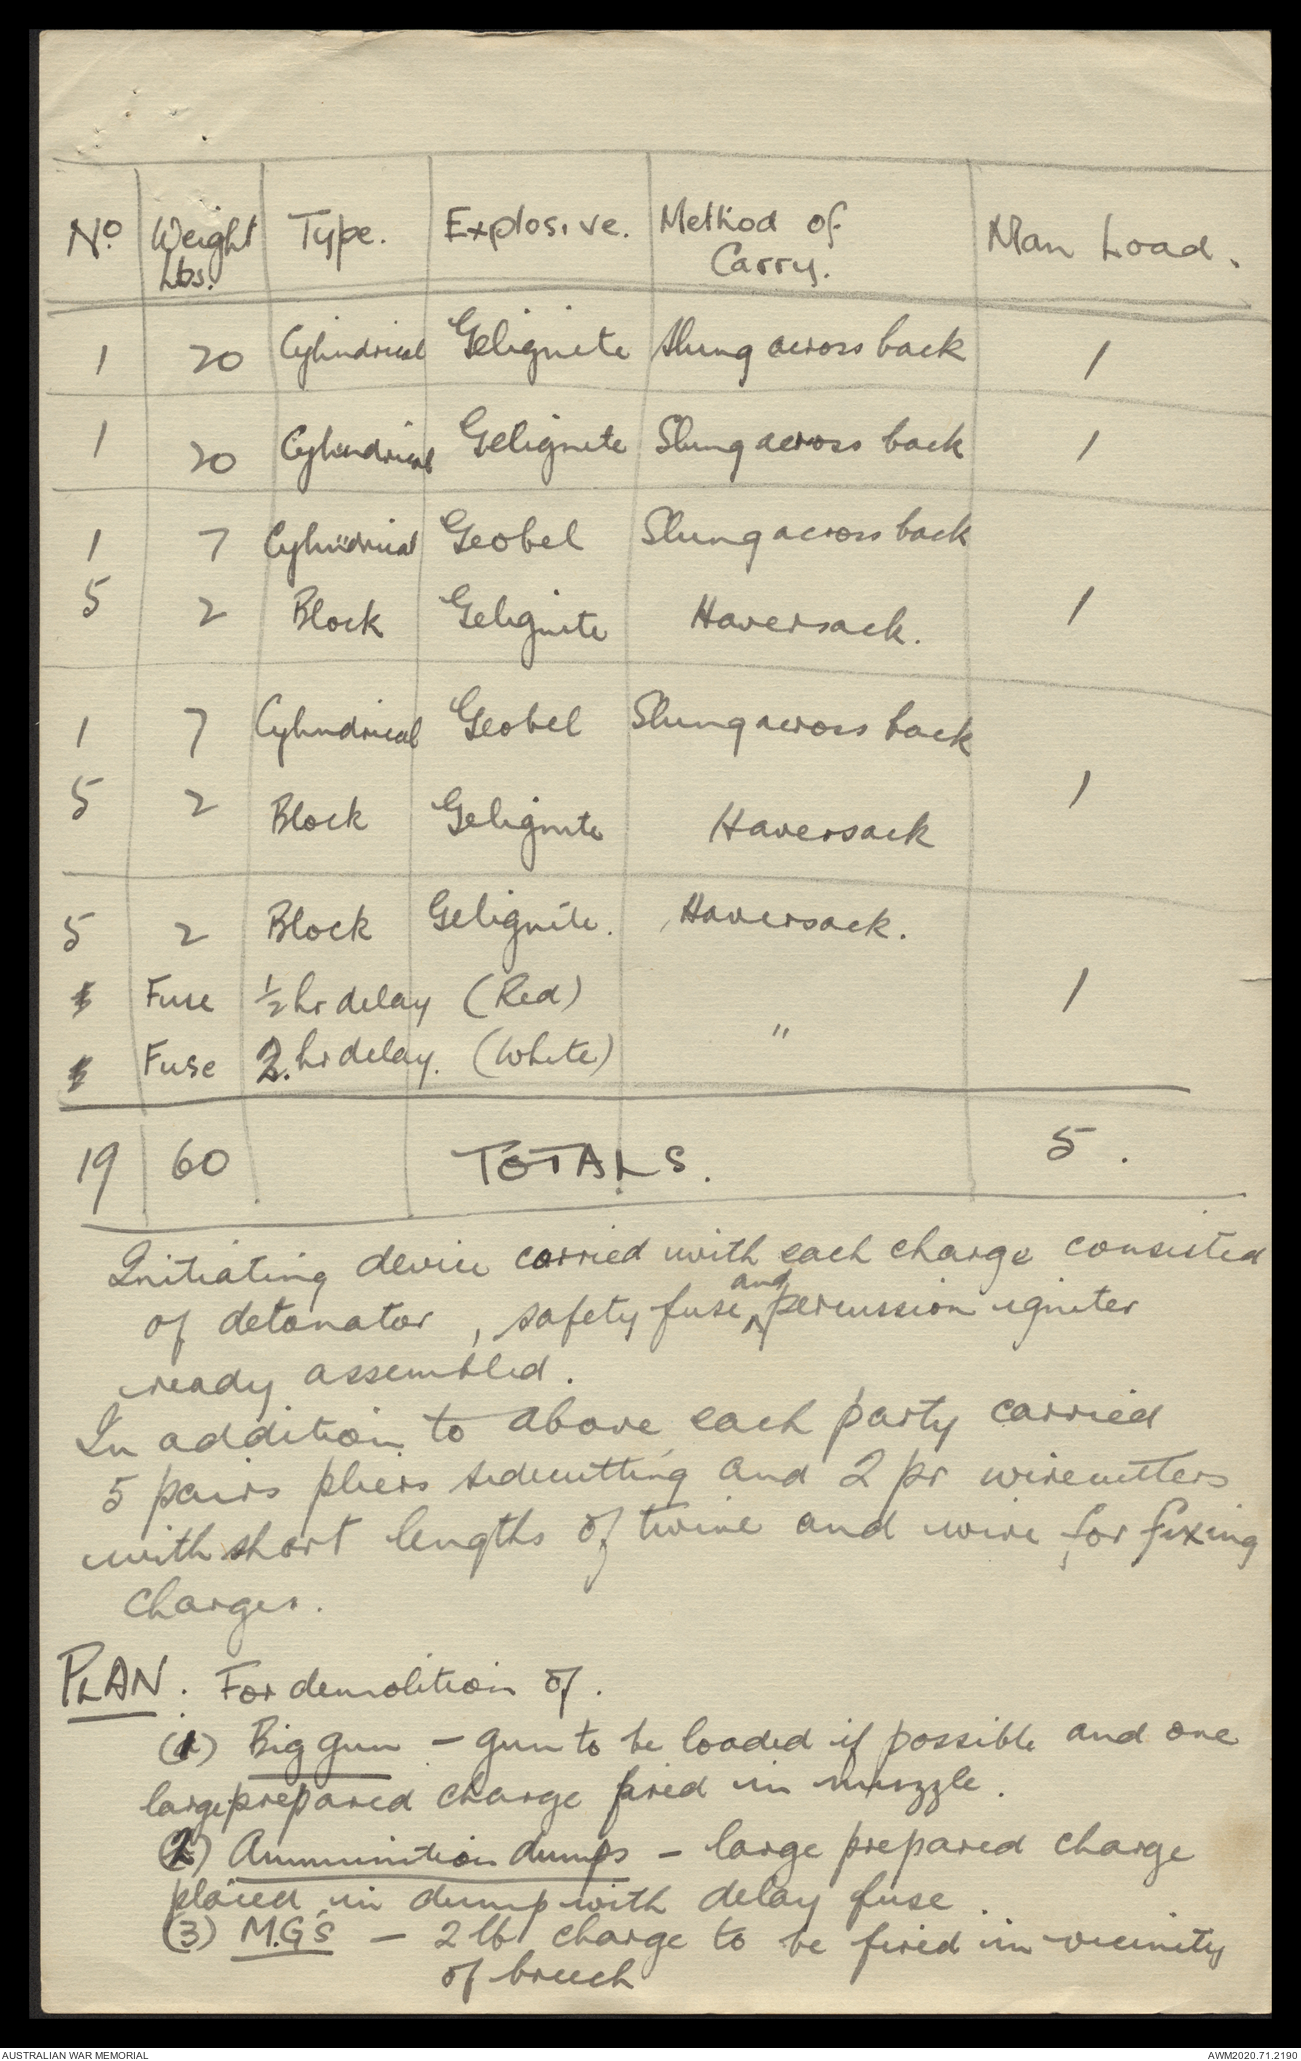 No. Weight Lbs. Type. Explosive. Method of Carry. Man Load.
1 20 Cylindrical Gelignite Slung across back 1
1 20 Cylindrical Gelignite Slung across back 1
1 7 Cylindrical Geobel Slung across back
5 2 Block Gelignite Haversack. 1
1 7 Cylindrical Geobel Slung across back
5 2 Block Gelignite Haversack 1
5 2 Block Gelignite. Haversack.
Fuse ½ hr delay (Red) 1
Fuse 2 hr delay. (White) "
19 60 TOTALS. 5.
Initiating device carried with each charge consisted
of detonator, safety fuse and percussion igniter
ready assembled.
In addition to above each party carried
5 pairs pliers sidecutting and 2 pr wirecutters
with short lengths of twine and wire for fixing
charges.
PLAN. For demolition of.
(1) Big gun - gun to be loaded if possible and one
large prepared charge fired in muzzle.
(2) Ammunition dumps - large prepared charge
placed in dump with delay fuse.
(3) M.G's - 2 lb charge to be fired in vicinity
of breech
AUSTRALIAN WAR MEMORIAL AWM2020.71.2190